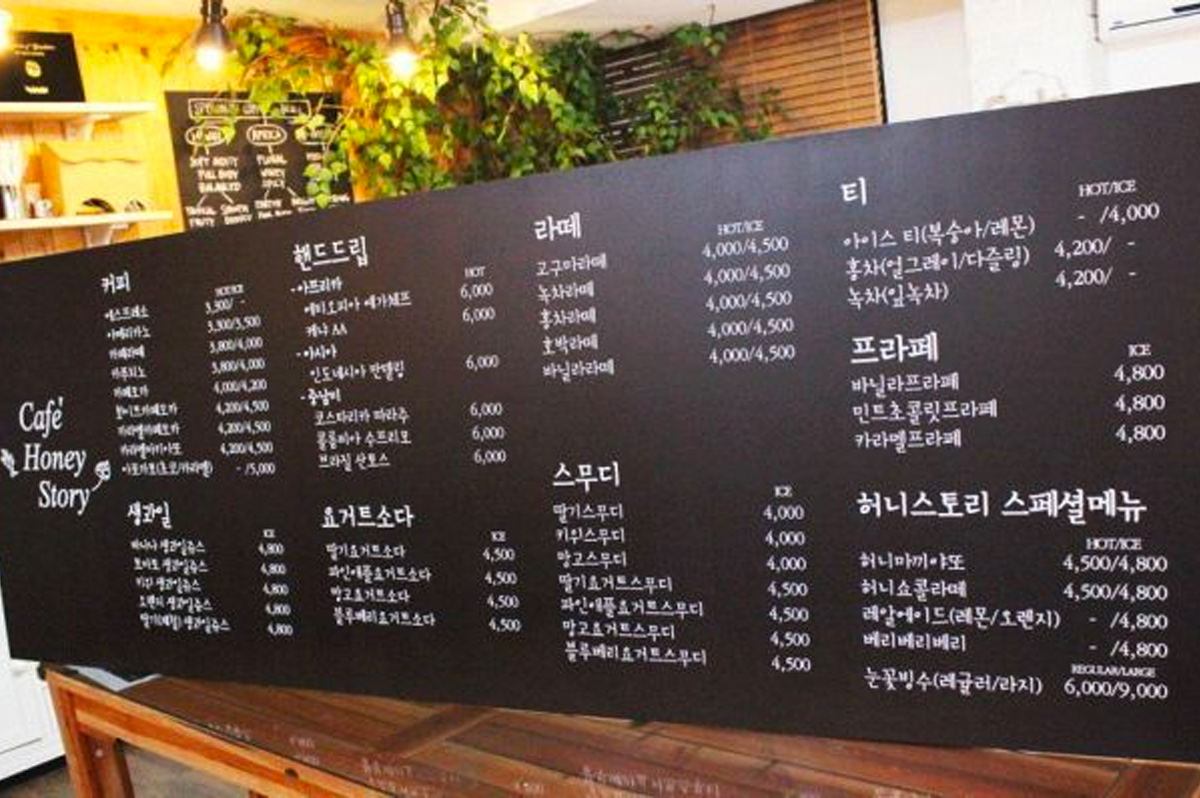 Café
Honey
Story
커피
HOT/ICE
에스프레소 3,300/ -
아메리카노 3,300/3,500
카페라떼 3,800/4,000
카푸치노 3,800/4,000
카페모카 4,000/4,200
화이트카페모카 4,200/4,500
카라멜카페모카 4,200/4,500
카라멜마끼아또 4,200/4,500
아포가토(초코/카라멜) - /5,000
생과일
ICE
바나나 생과일쥬스 4,800
토마토 생과일쥬스 4,800
키위 생과일쥬스 4,800
오렌지 생과일쥬스 4,800
딸기(계절) 생과일쥬스 4,800
핸드드립
HOT
-아프리카
에티오피아 예가체프 6,000
케냐 AA 6,000
-아시아
인도네시아 만델링 6,000
-중남미
코스타리카 따라주 6,000
콜롬비아 수프리모 6,000
브라질 산토스 6,000
요거트소다
ICE
딸기요거트소다 4,500
파인애플요거트소다 4,500
망고요거트소다 4,500
블루베리요거트소다 4,500
라떼
HOT/ICE
고구마라떼 4,000/4,500
녹차라떼 4,000/4,500
홍차라떼 4,000/4,500
호박라떼 4,000/4,500
바닐라라떼 4,000/4,500
스무디
ICE
딸기스무디 4,000
키위스무디 4,000
망고스무디 4,000
딸기요거트스무디 4,500
파인애플요거트스무디 4,500
망고요거트스무디 4,500
블루베리요거트스무디 4,500
티
HOT/ICE
아이스 티(복숭아/레몬) - /4,000
홍차(얼그레이/다즐링) 4,200/ -
녹차(잎녹차) 4,200/ -
프라페
ICE
바닐라프라페 4,800
민트초콜릿프라페 4,800
카라멜프라페 4,800
허니스토리 스페셜메뉴
HOT/ICE
허니마끼야또 4,500/4,800
허니쇼콜라떼 4,500/4,800
레알에이드(레몬/오렌지) - /4,800
베리베리베리 - /4,800
REGULAR/LARGE
눈꽃빙수(레귤러/라지) 6,000/9,000
AFRICA
FULL BODY
BALANCED
FLORAL
WINEY
SPICY